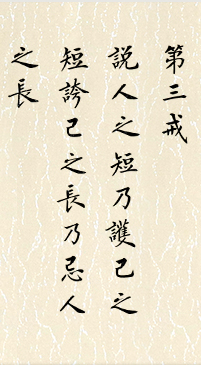 第三戒
説人之短乃護己之
短誇己之長乃忌人
之長